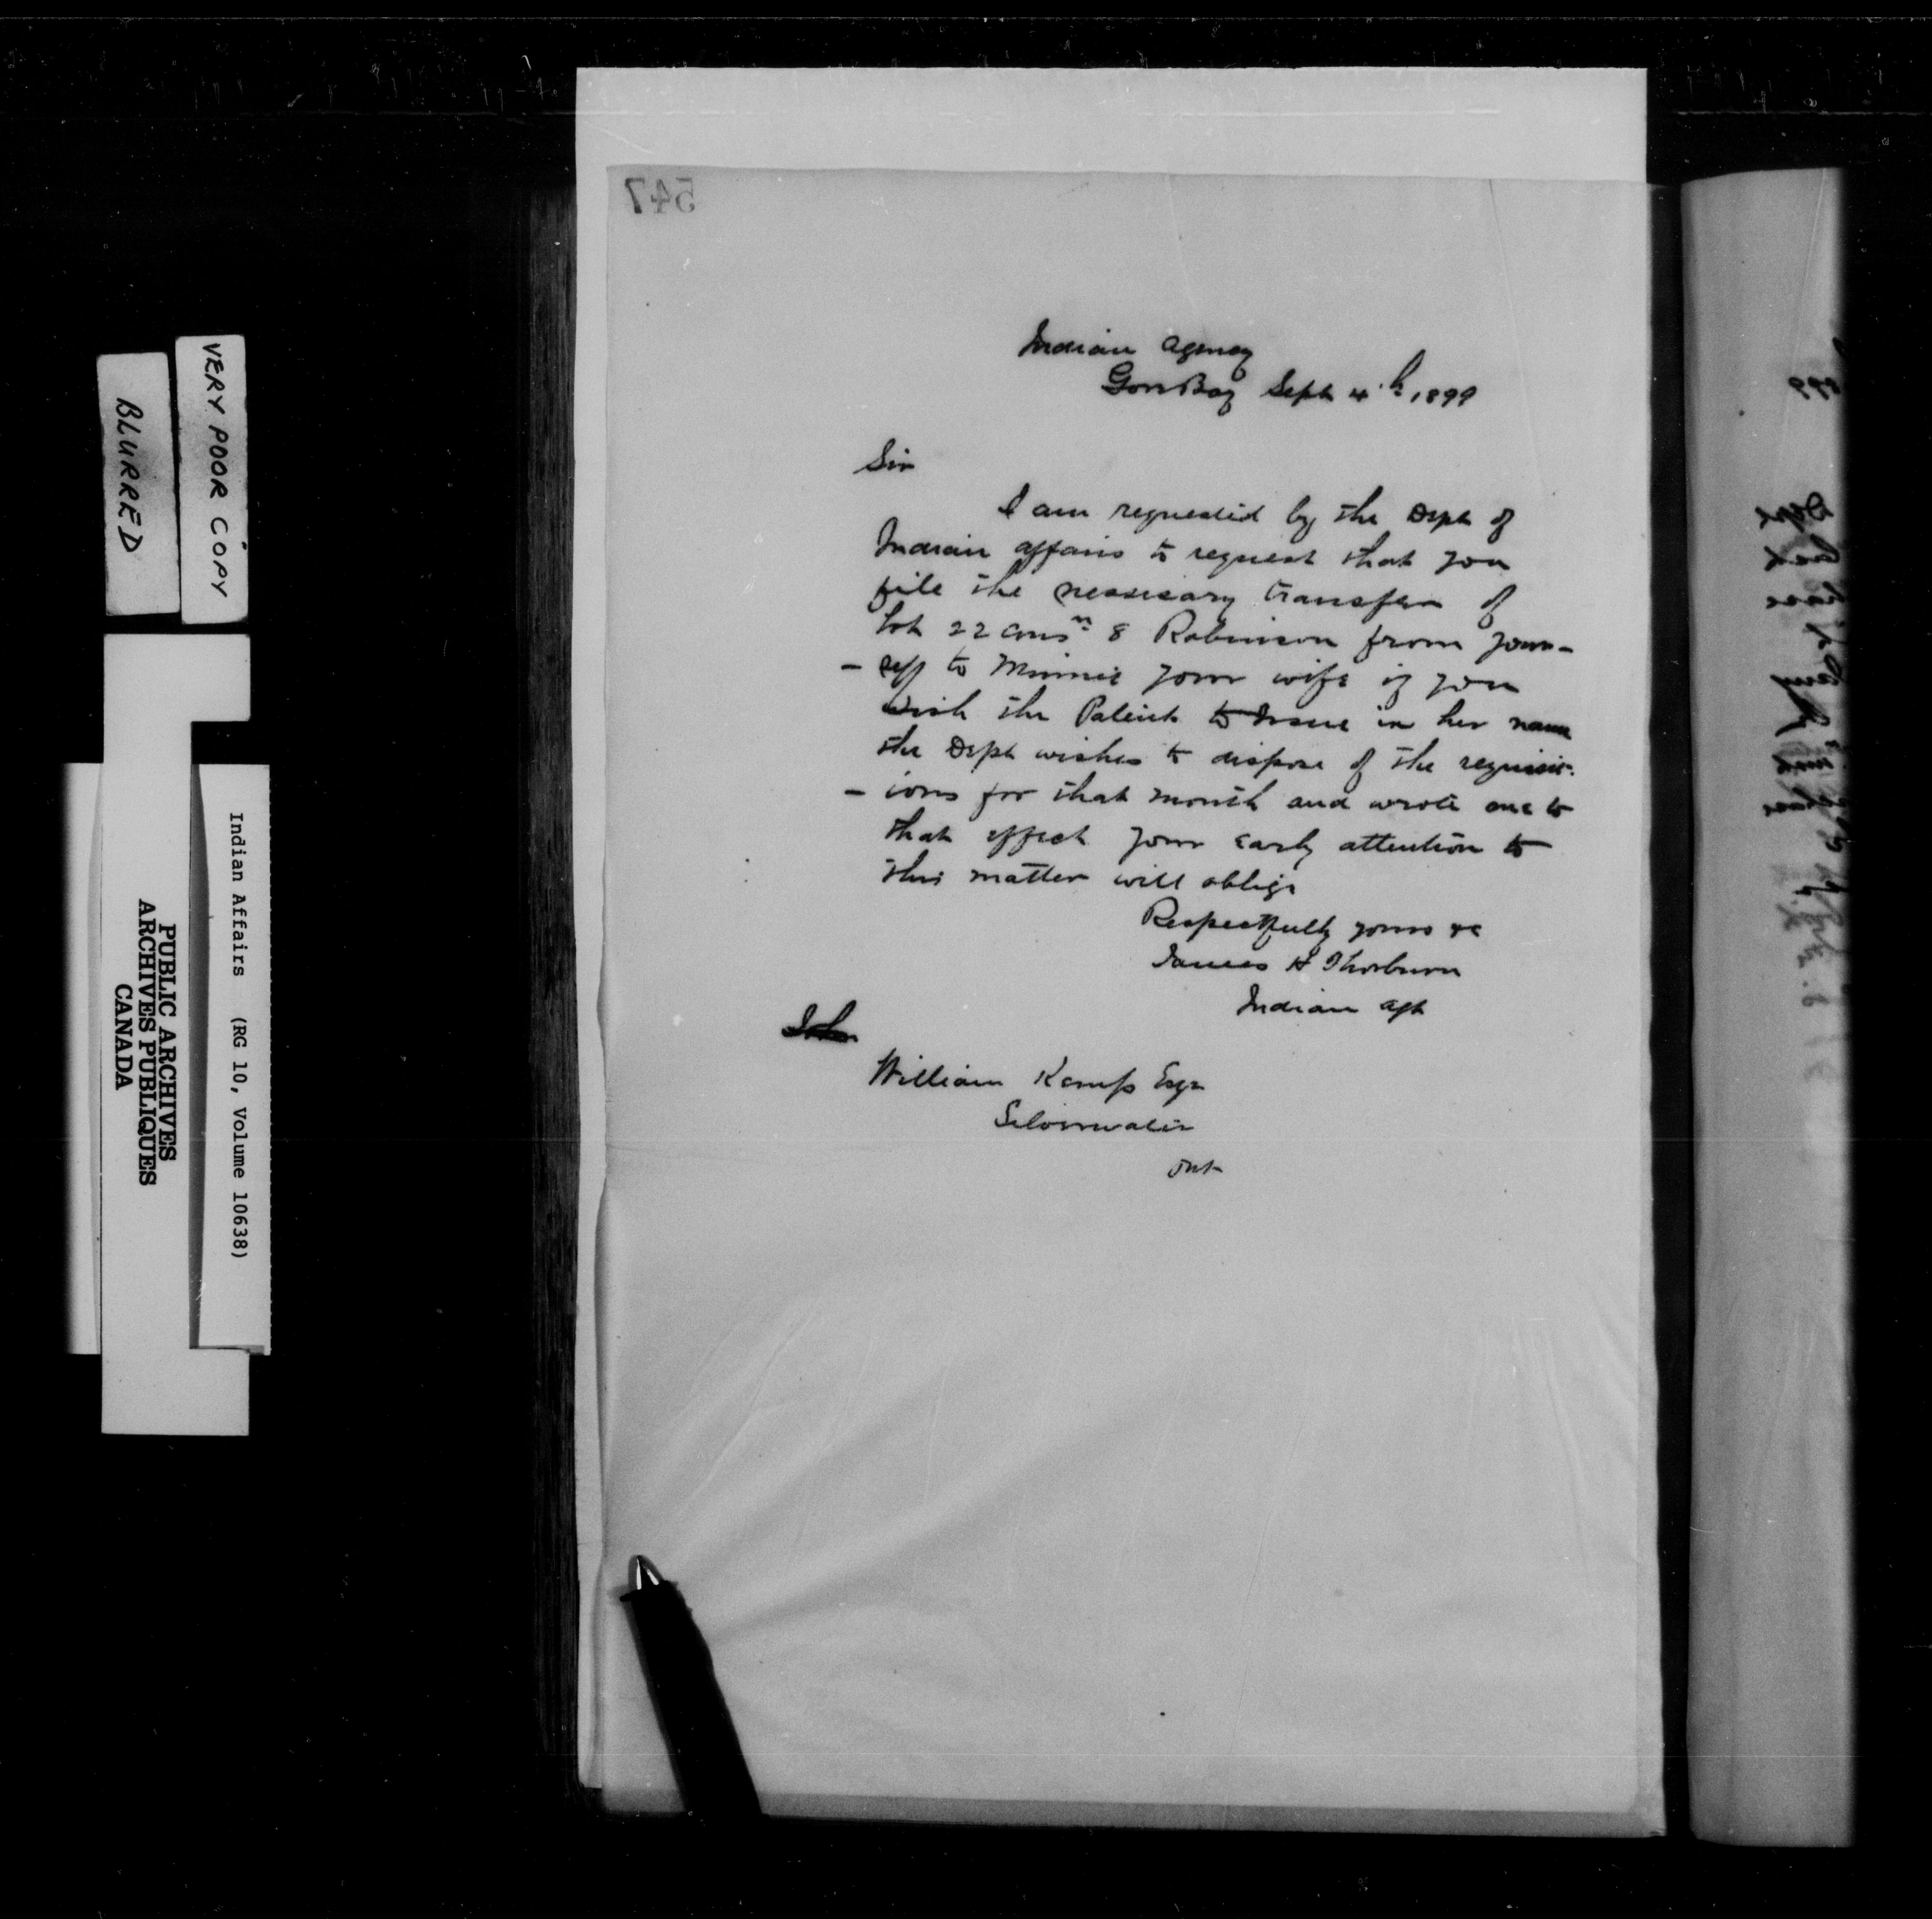 547
Indian Agency
Gore Bay Sept 4th, 1899
Sir
I am requested by the Dept of
Indian affairs to request that you
file the nessisary transfer of
Lot 22 Consn 8 Robinson from your-
- self to Minnie your wife if you
wish the Patent to Issue in her name
the Dept wishes to dispose of the requisit-
- ions for that month and wrote me to
that effect your early attention to
this matter will oblige
Respectfully yours &c
James H Thorburn
Indian Agt
John
William Kemp Esqr
Silverwater
Ont
VERY POOR COPY
BLURRED
Indian Affairs (RG 10, Volume 10638)
PUBLIC ARCHIVES
ARCHIVES PUBLIQUES
CANADA